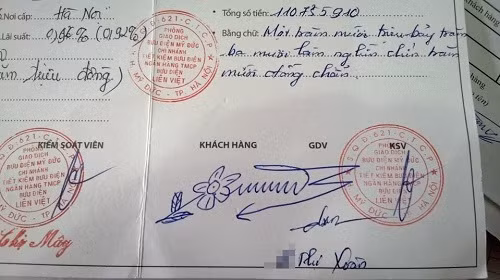 Nơi cấp: Hà Nội
Lãi suất: 0,96% (0,92%
Tổng số tiền: 110.735.910
Bằng chữ: Một trăm mười triệu bảy trăm
ba mươi lăm nghìn chín trăm
mười đồng chẵn.
triệu đồng)
S.Q.Đ:621-C.T.C.P
PHÒNG
GIAO DỊCH
BƯU ĐIỆN MỸ ĐỨC
CHI NHÁNH
TIẾT KIỆM BƯU ĐIỆN
NGÂN HÀNG TMCP
BƯU ĐIỆN
LIÊN VIỆT
H. MỸ ĐỨC - TP. HÀ NỘI
KIỂM SOÁT VIÊN
KHÁCH HÀNG
GDV
KSV
PHÒNG
GIAO DỊCH
BƯU ĐIỆN MỸ ĐỨC
CHI NHÁNH
TIẾT KIỆM BƯU ĐIỆN
NGÂN HÀNG TMCP
BƯU ĐIỆN
LIÊN VIỆT
S.Q.Đ:621-C.T.C.P
PHÒNG
GIAO DỊCH
BƯU ĐIỆN MỸ ĐỨC
CHI NHÁNH
TIẾT KIỆM BƯU ĐIỆN
NGÂN HÀNG TMCP
BƯU ĐIỆN
LIÊN VIỆT
Mây
Xoan